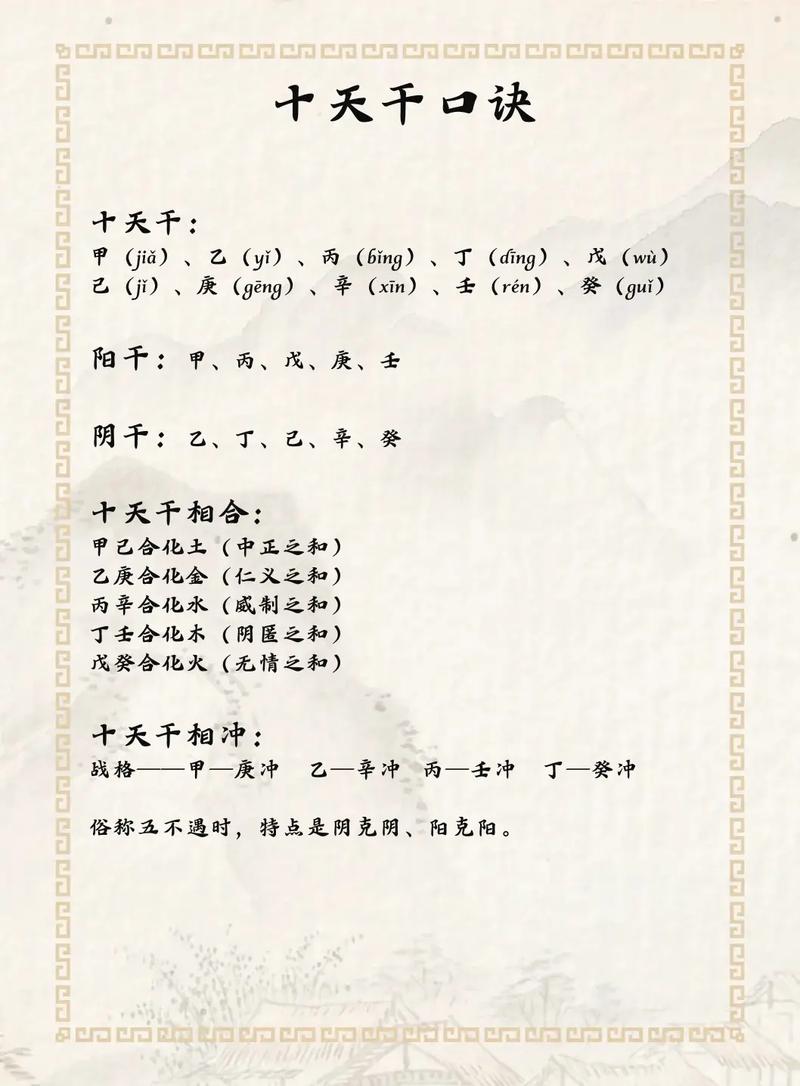 十天干口诀
十天干：
甲（jiǎ）、乙（yǐ）、丙（bǐng）、丁（dīng）、戊（wù）
己（jǐ）、庚（gēng）、辛（xīn）、壬（rén）、癸（guǐ）
阳干：甲、丙、戊、庚、壬
阴干：乙、丁、己、辛、癸
十天干相合：
甲己合化土（中正之和）
乙庚合化金（仁义之和）
丙辛合化水（威制之和）
丁壬合化木（阴匿之和）
戊癸合化火（无情之和）
十天干相冲：
战格——甲—庚冲 乙—辛冲 丙—壬冲 丁—癸冲
俗称五不遇时，特点是阴克阴、阳克阳。